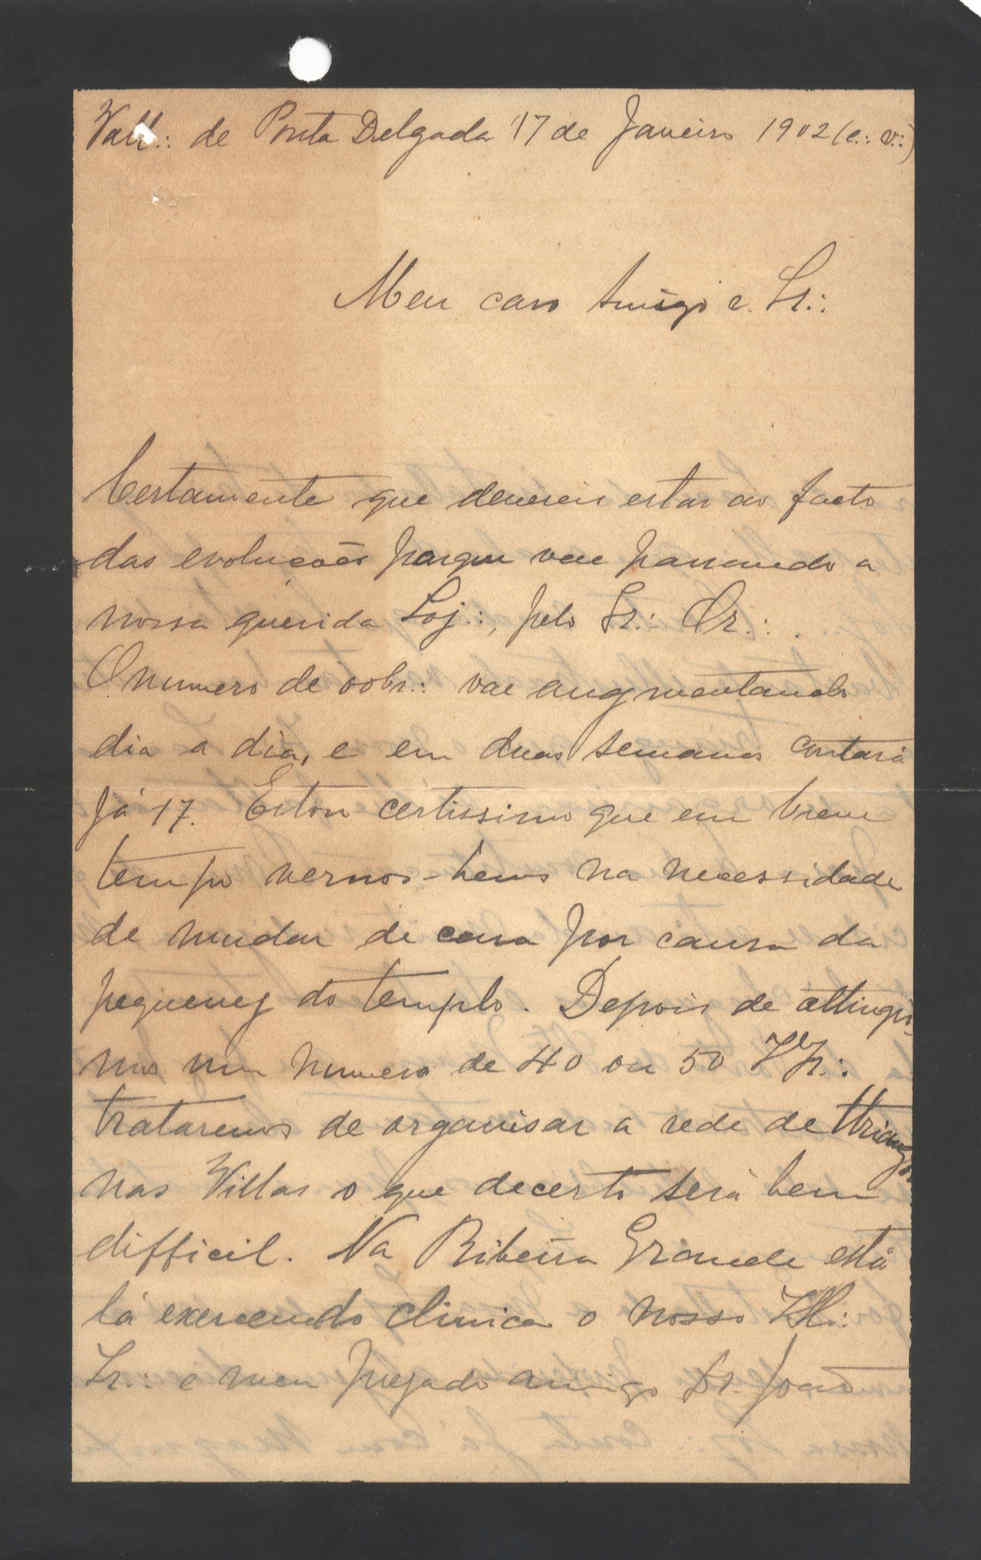 Vall∴ de Ponta Delgada 17 de Janeiro 1902 (e∴ v∴)
Meu caro Amigo e Ir∴
Certamente que devereis estar ao facto
das evoluções porque vae passando a
nossa querida Loj∴, pelo Ir∴ Or∴.
O numero de oobr∴ vae augmentando
dia a dia, e em duas semanas contará
já 17. Estou certissimo que em breve
tempo vernos-hemos na necessidade
de mudar de casa por causa da
pequenez do templo. Depois de attingir-
mos um numero de 40 ou 50 IIr∴
trataremos de organisar a rede de ttriang
nas Villas o que decerto será bem
difficil. Na Ribeira Grande está
lá exercendo clinica o nosso Ill∴
Ir∴ e meu prezado amigo Dr. João